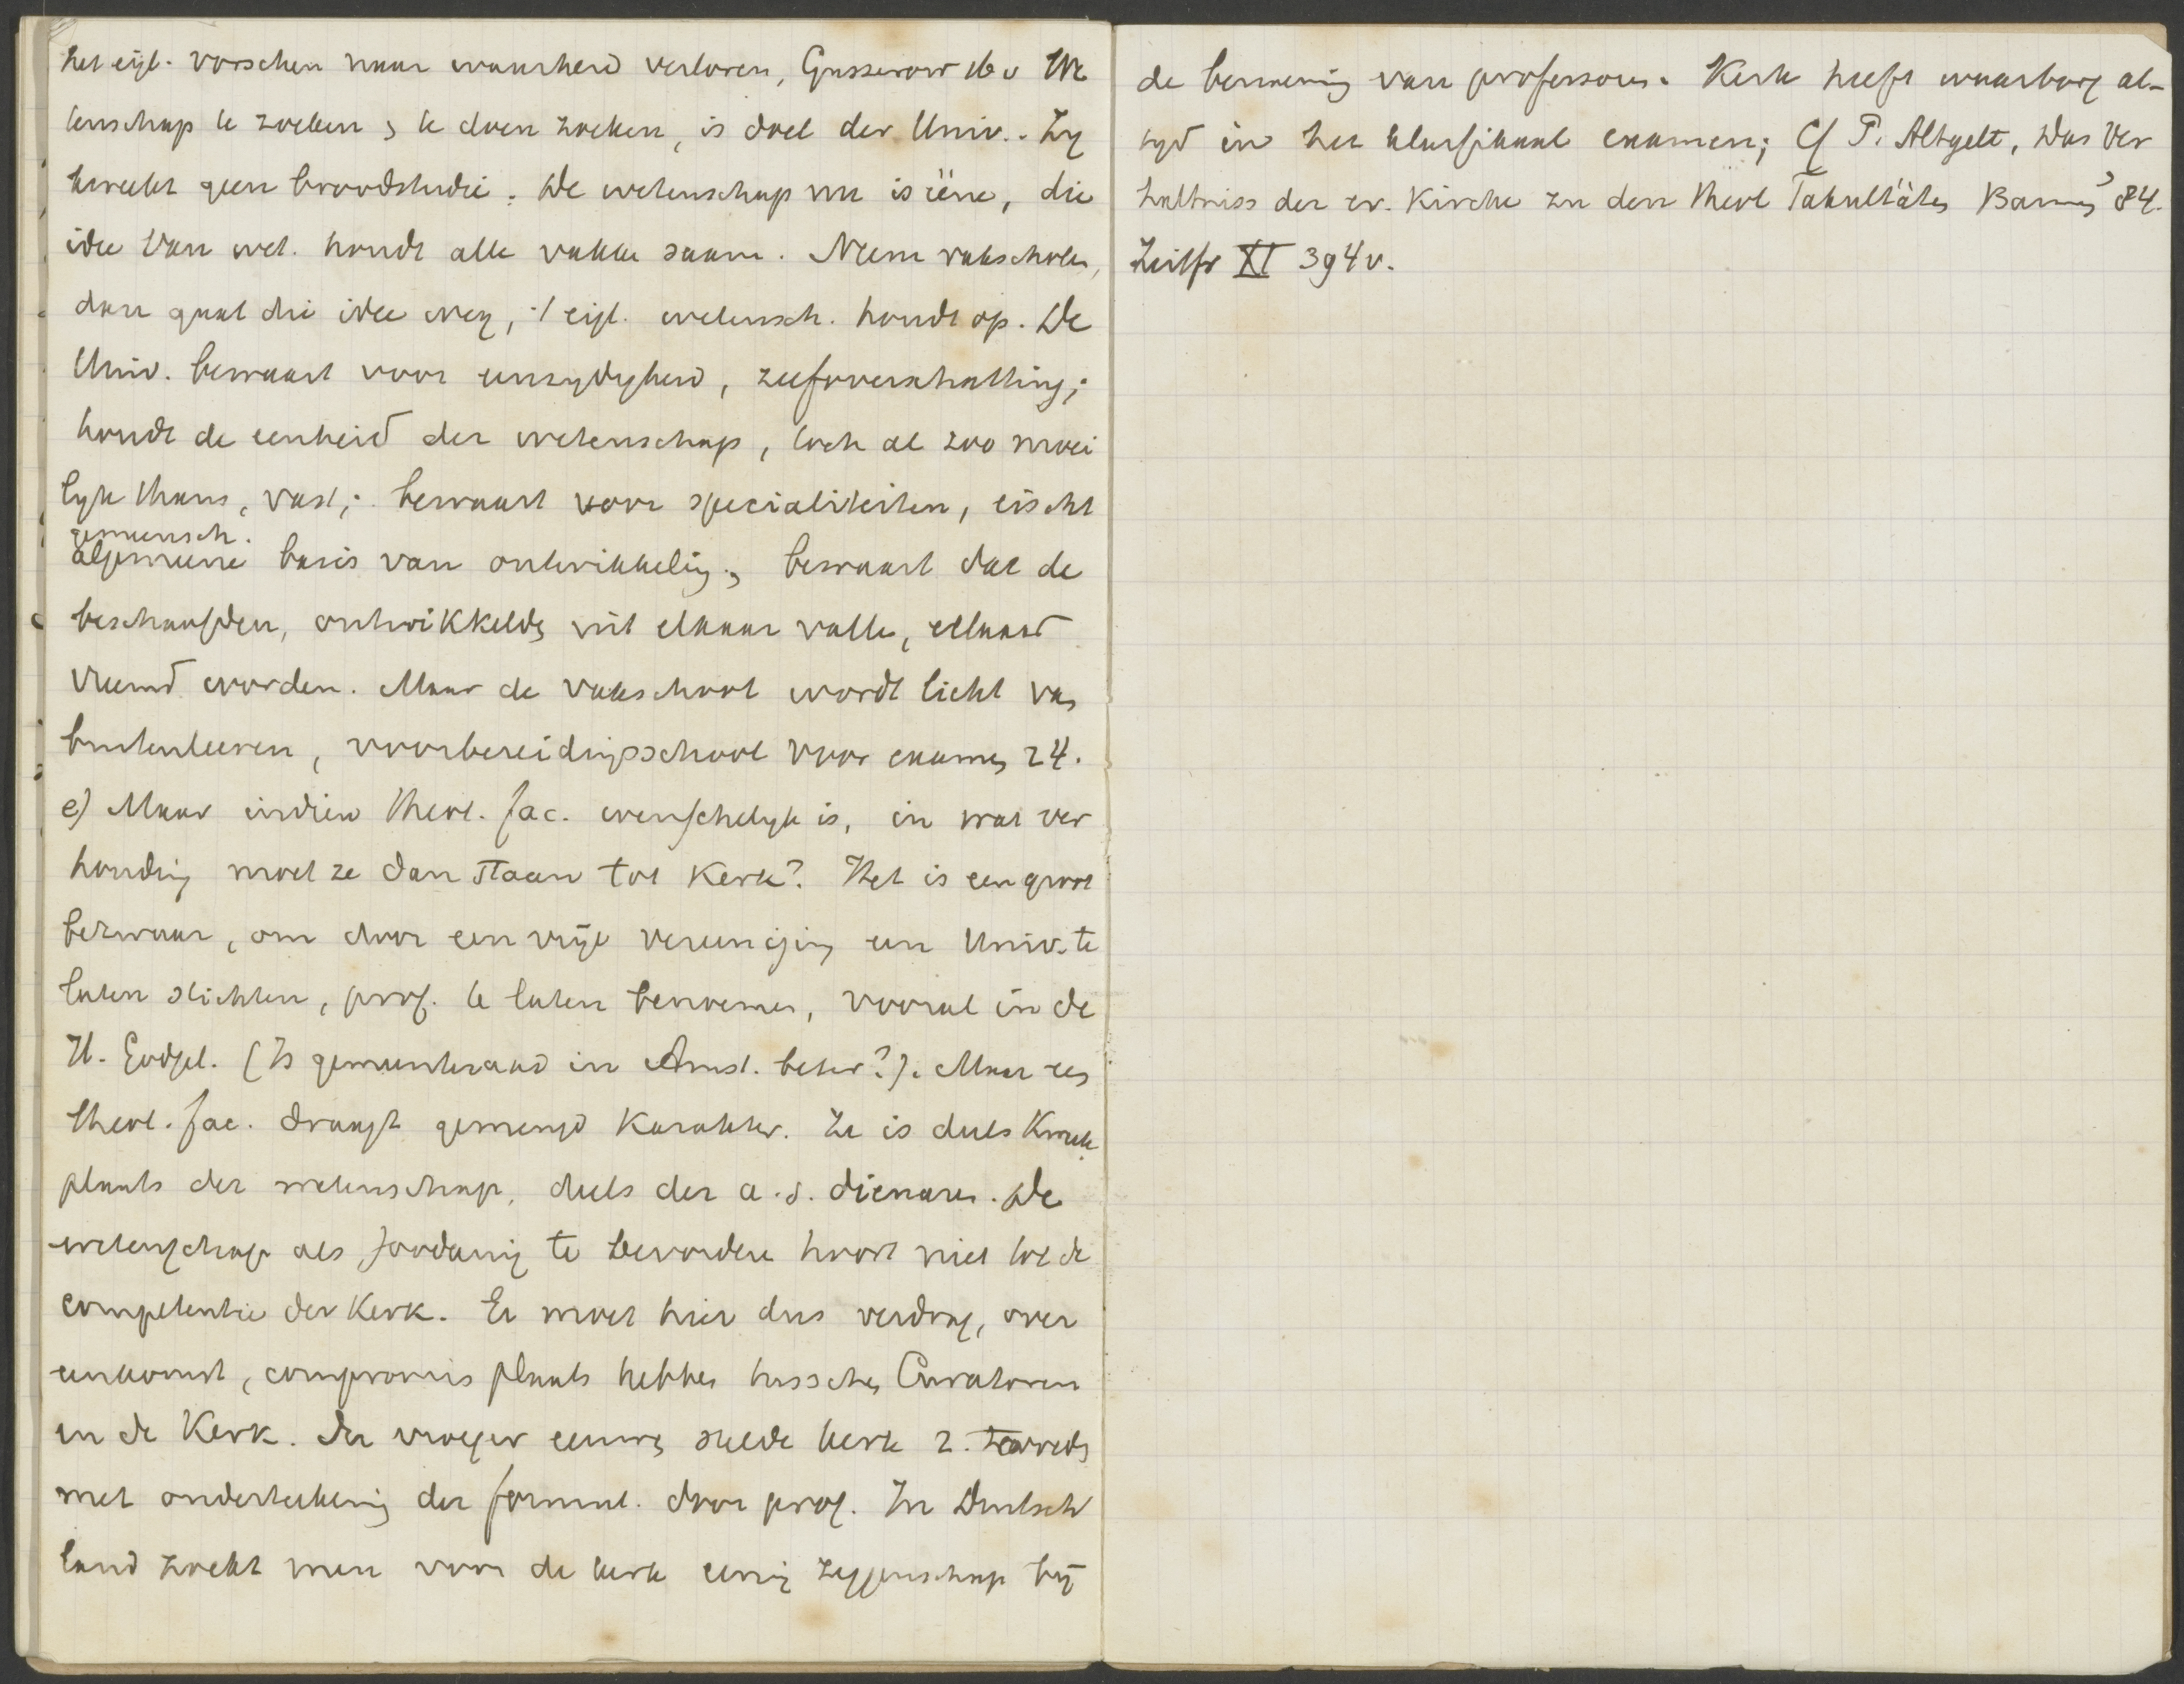 het eigl. vorschen naar waarheid verloren, Gusserow 16 v We
tenschap te zoeken, te doen zoeken, is doel der Univ.. Zy
kweekt geen broodstudie. De wetenschap nu is ééne, die
idee van wet. houdt alle vakken saam. Neem vakscholen,
dan gaat die idee weg, 't eigl. wetensch. houdt op. De
Univ. bewaart voor eenzydigheid, zelfoverschatting;
houdt de eenheid der wetenschap, toch al zoo moei
lyk thans, vast; bewaart voor specialiteiten, eischt
gemeensch.
algemeene basis van ontwikkeling, bewaart dat de
beschaafden, ontwikkelden uit elkaar vallen, elkaar
vreemd worden. Maar de vakschool wordt licht van
buitenleeren, voorbereidingsschool voor examen 24.
e) Maar indien theol. fac. wenschelyk is, in wat ver
houding moet ze dan staan tot kerk? Het is een groot
bezwaar, om door een vrije vereeniging een Univ. te
laten stichten, prof. te laten benoemen, vooral in de
H. Godgel. (Is gemeenteraad in Amst. beter?). Maar een
theol. fac. draagt gemengd karakter. Ze is deels kweek
plaats der wetenschap, deels der a.s. dienaren. De
wetenschap als zoodanig te bevorderen hoort niet tot de
competentie der Kerk. Er moet hier dus verdrag, over
eenkomst, compromis plaats hebben tusschen Curatoren
en de Kerk. Der vroeger eeuwen stelde kerk z. tevreden
met onderteekening der formul. door prof. In Duitsch
land zoekt men voor de kerk eenig zeggenschap bij
de benoeming van professoren. Kerk heeft waarborg al-
tyd in het klassikaal examen; Cf P. Altgelt, Das Ver
haltniss der ev. Kirche zu den theol Fakultäten Barmen 84.
Zeitfr XI 394 v.